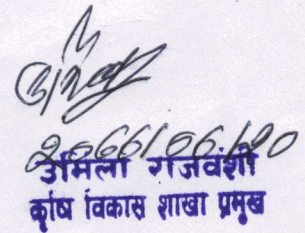 2066/06/20
उर्मिला राजवंशी
कृषि विकास शाखा प्रमुख